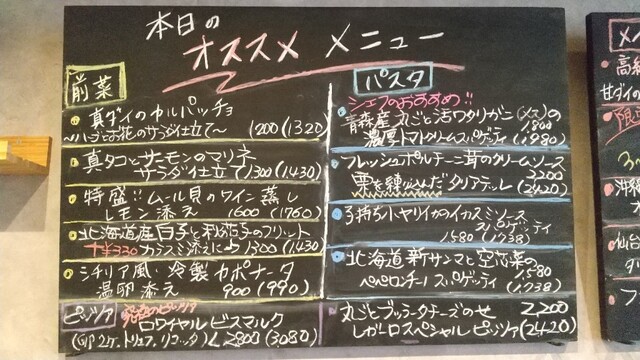 本日の
オススメ メニュー
前菜
真ダイのカルパッチョ
～ハーブとお花のサラダ仕立て～ 1200(1320)
真タコとサーモンのマリネ
サラダ仕立て 1300(1430)
特盛!!ムール貝のワイン蒸し
レモン添え 1600(1760)
北海道産白子と利茄子のフリット
+¥330 カラスミ添えに♪ 1300(1430)
シチリア風・冷製カポナータ
温卵添え 900(990)
ピッツァ
究極のピッツァ
ロワイヤルビスマルク
(卵2ケ、トリュフ、リコッタ) 2800(3080)
パスタ
シェフのおすすめ!!
青森産 丸ごと活ワタリガニ(メス)の
濃厚トマトクリームスパゲティ 1800(1980)
フレッシュポルチーニ茸のクリームソース
栗を練り込んだタリアテッレ 2200(2420)
子持ちヤリイカのイカスミソース
スパゲッティ
1580(1738)
北海道新サンマと空芯菜の
ペペロンチーノスパゲティ 1580(1738)
丸ごとブッラータチーズのせ
レガーロスペシャルピッツァ 2200(2420)
高級
甘ダイの
限定
沖縄
仙台